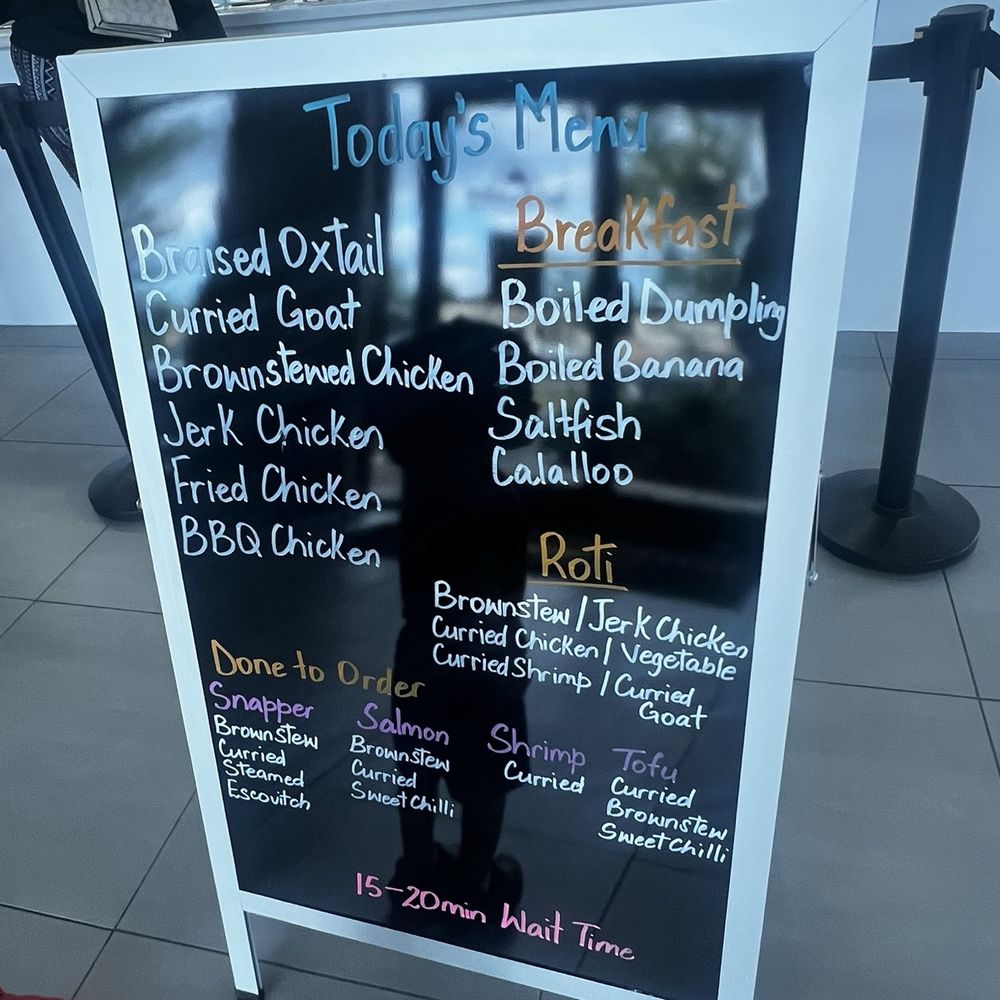 Today's Menu
Braised Oxtail
Curried Goat
Brownstewed Chicken
Jerk Chicken
Fried Chicken
BBQ Chicken
Breakfast
Boiled Dumpling
Boiled Banana
Saltfish
Calalloo
Roti
Brownstew / Jerk Chicken
Curried Chicken / Vegetable
Curried Shrimp / Curried
Goat
Done to Order
Snapper
Brownstew
Curried
Steamed
Escovitch
Salmon
Brownstew
Curried
Sweet Chilli
Shrimp
Curried
Tofu
Curried
Brownstew
Sweet Chilli
15-20min Wait Time